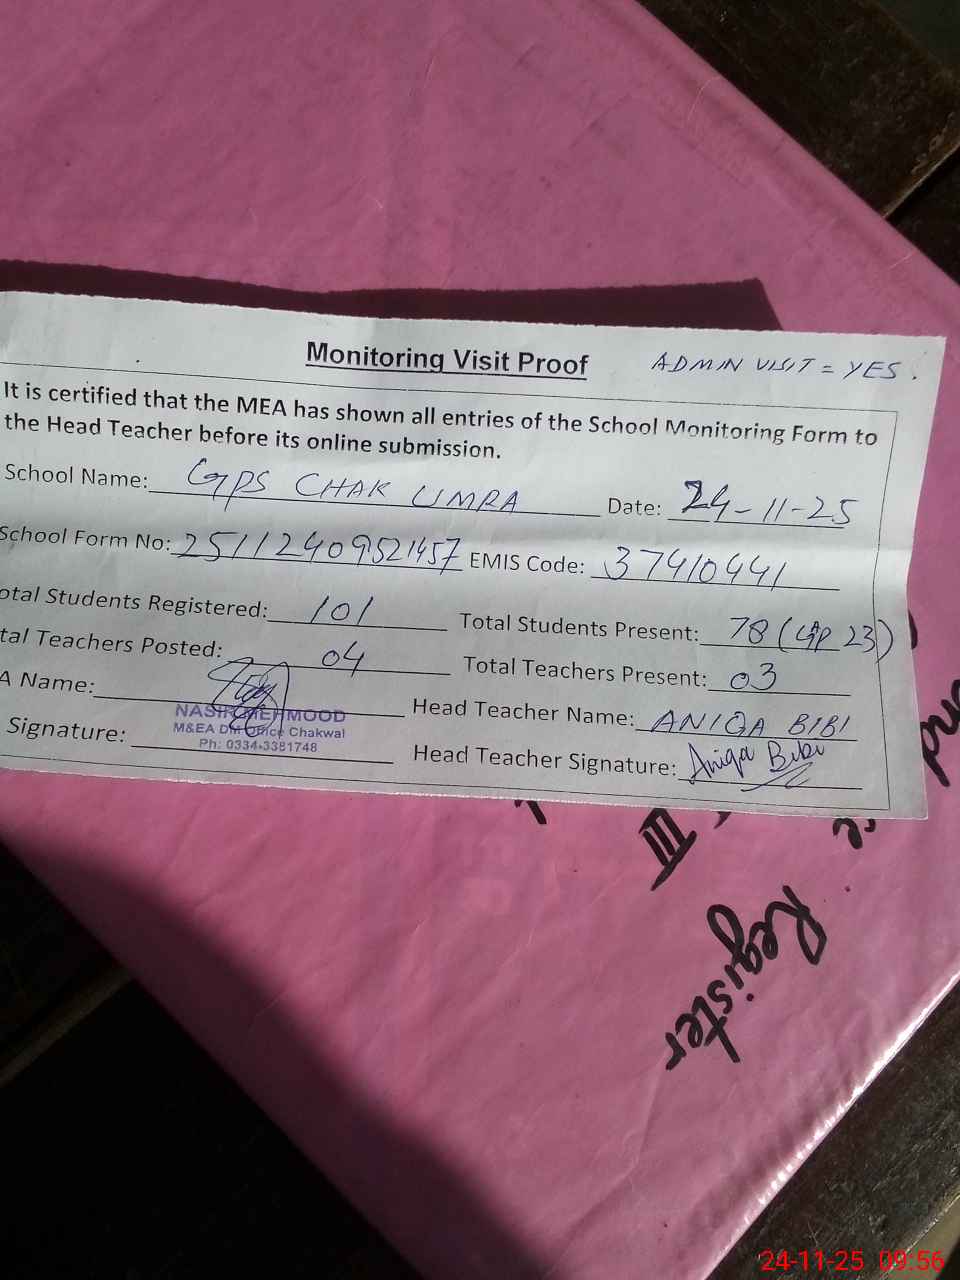 Monitoring Visit Proof ADMIN VISIT = YES.
It is certified that the MEA has shown all entries of the School Monitoring Form to
the Head Teacher before its online submission.
School Name: GPS CHAK UMRA Date: 24-11-25
School Form No: 25112409521457 EMIS Code: 37410441
otal Students Registered: 101 Total Students Present: 78 (LP 23)
tal Teachers Posted: 04 Total Teachers Present: 03
A Name: Head Teacher Name: ANIQA BIBI
NASIR MEHMOOD
M&EA DM Office Chakwal
Ph: 0334-3381748
Signature: Head Teacher Signature: Aniqa Bibi
III
Register
24-11-25 09:56